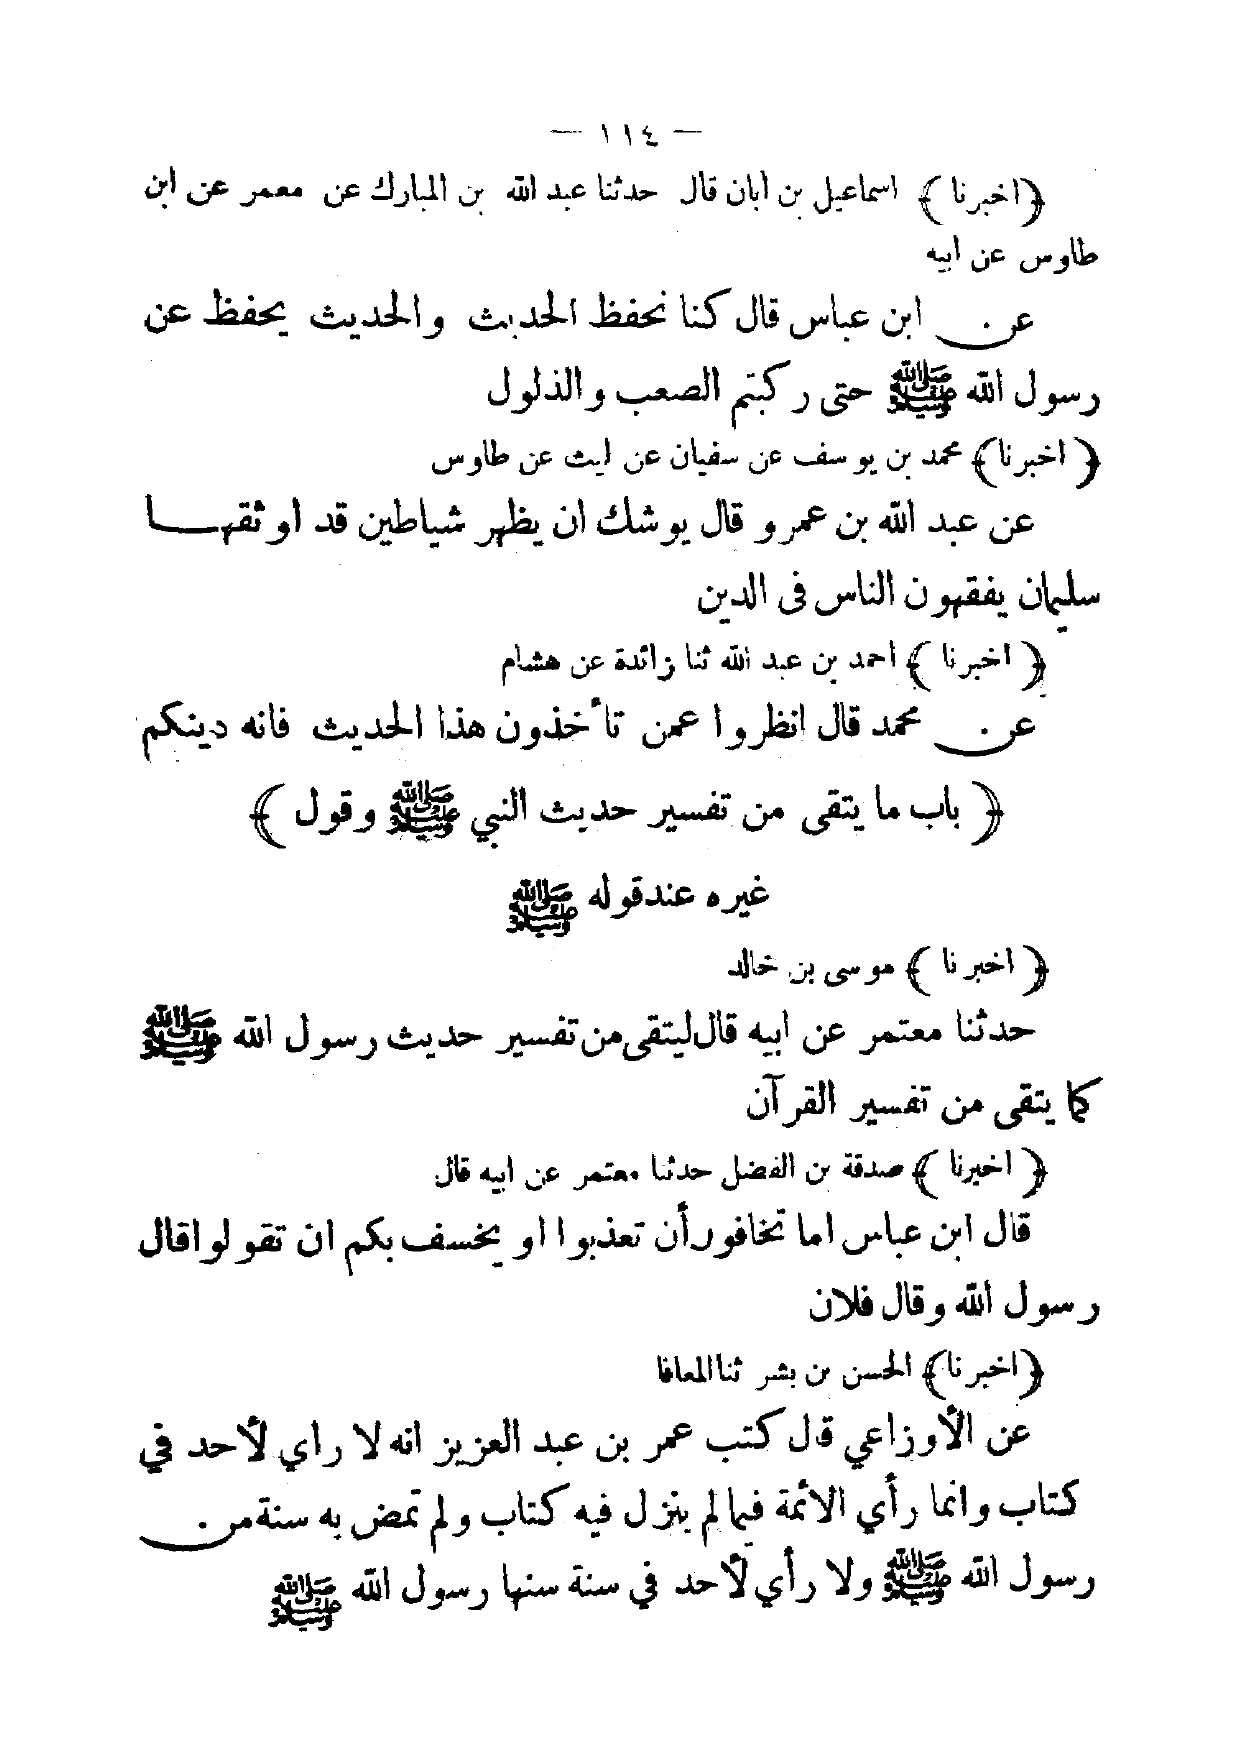 — ١١٤ —
﴿ اخبرنا ﴾ اسماعيل بن أبان قال حدثنا عبد الله بن المبارك عن معمر عن ابن
طاوس عن ابيه
عن ابن عباس قال كنا نحفظ الحديث والحديث يحفظ عن
رسول الله ﷺ حتى ركبتم الصعب والذلول
﴿ اخبرنا ﴾ محمد بن يوسف عن سفيان عن ليث عن طاوس
عن عبد الله بن عمرو قال يوشك ان يظهر شياطين قد اوثقها
سليمان يفقهون الناس في الدين
﴿ اخبرنا ﴾ احمد بن عبد الله ثنا زائدة عن هشام
عن محمد قال انظروا عمن تأخذون هذا الحديث فانه دينكم
﴿ باب ما يتقى من تفسير حديث النبي ﷺ وقول ﴾
غيره عند قوله ﷺ
﴿ اخبرنا ﴾ موسى بن خالد
حدثنا معتمر عن ابيه قال ليتقى من تفسير حديث رسول الله ﷺ
كما يتقى من تفسير القرآن
﴿ اخبرنا ﴾ صدقة بن الفضل حدثنا معتمر عن ابيه قال
قال ابن عباس اما تخافون أن تعذبوا او يخسف بكم ان تقولوا قال
رسول الله وقال فلان
﴿ اخبرنا ﴾ الحسن بن بشر ثنا المعافا
عن الأوزاعي قال كتب عمر بن عبد العزيز انه لا راي لأحد في
كتاب وانما رأي الائمة فيما لم ينزل فيه كتاب ولم تمض به سنة من
رسول الله ﷺ ولا رأي لأحد في سنة سنها رسول الله ﷺ